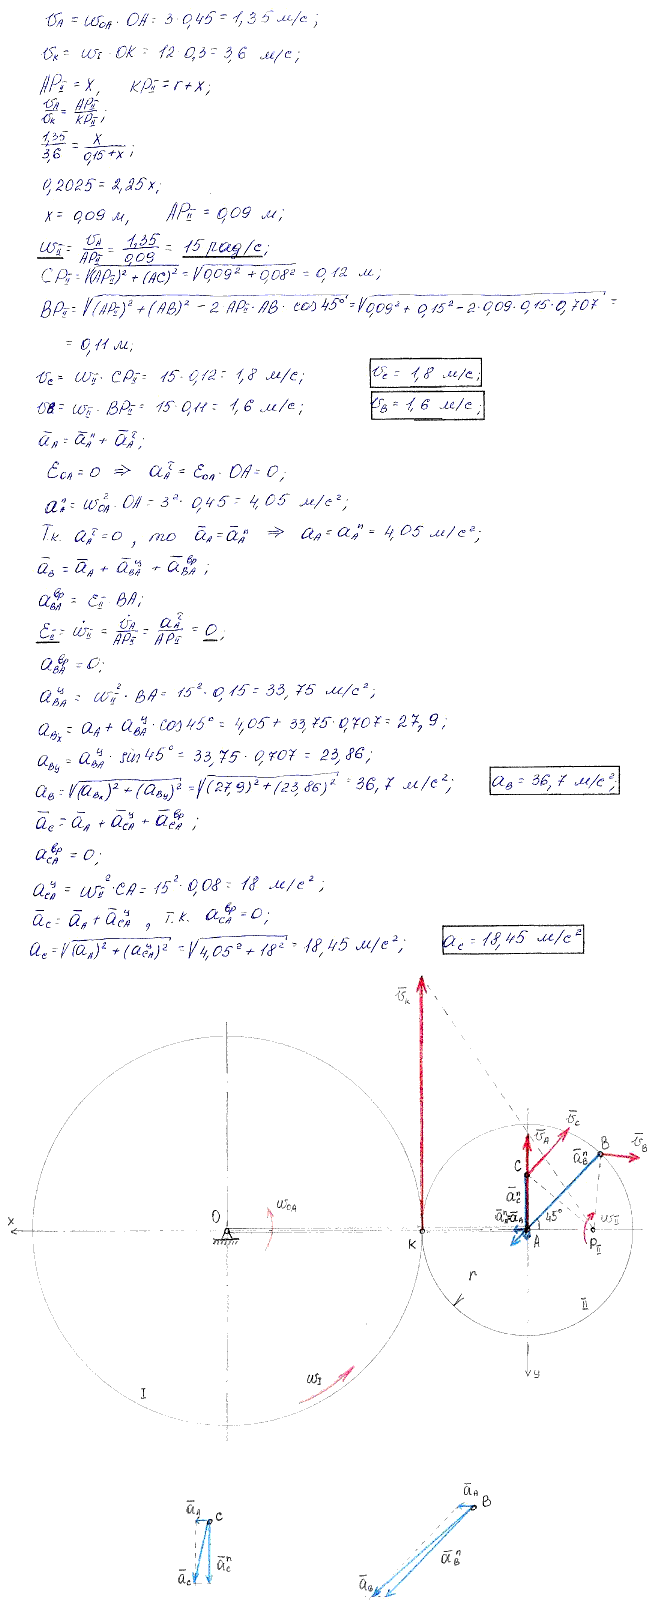 v_A = ω_OA · OA = 3 · 0,45 = 1,35 м/с;
v_K = ω_I · OK = 12 · 0,3 = 3,6 м/с;
AP_II = x, KP_II = r + x;
v_A/v_K = AP_II/KP_II;
1,35/3,6 = x/(0,15+x);
0,2025 = 2,25x;
x = 0,09 м, AP_II = 0,09 м;
ω_II = v_A/AP_II = 1,35/0,09 = 15 рад/с;
CP_II = √((AP_II)² + (AC)²) = √(0,09² + 0,08²) = 0,12 м;
BP_II = √((AP_II)² + (AB)² − 2 AP_II · AB · cos45°) = √(0,09² + 0,15² − 2·0,09·0,15·0,707) =
= 0,11 м;
v_C = ω_II · CP_II = 15 · 0,12 = 1,8 м/с; v_C = 1,8 м/с;
v_B = ω_II · BP_II = 15 · 0,11 = 1,6 м/с; v_B = 1,6 м/с;
ā_A = ā_A^n + ā_A^τ;
ε_OA = 0 ⇒ a_A^τ = ε_OA · OA = 0;
a_A^n = ω_OA² · OA = 3² · 0,45 = 4,05 м/с²;
Т.к. a_A^τ = 0, то ā_A = ā_A^n ⇒ a_A = a_A^n = 4,05 м/с²;
ā_B = ā_A + ā_BA^ц + ā_BA^вр;
a_BA^вр = ε_II BA;
ε_II = ω̇_II = v̇_A/AP_II = a_A^τ/AP_II = 0;
a_BA^вр = 0;
a_BA^ц = ω_II² · BA = 15² · 0,15 = 33,75 м/с²;
a_Bx = a_A + a_BA^ц · cos45° = 4,05 + 33,75 · 0,707 = 27,9;
a_By = a_BA^ц · sin45° = 33,75 · 0,707 = 23,86;
a_B = √((a_Bx)² + (a_By)²) = √((27,9)² + (23,86)²) = 36,7 м/с²; a_B = 36,7 м/с²;
ā_C = ā_A + ā_CA^ц + ā_CA^вр;
a_CA^вр = 0;
a_CA^ц = ω_II² · CA = 15² · 0,08 = 18 м/с²;
ā_C = ā_A + ā_CA^ц, т.к. a_CA^вр = 0;
a_C = √((a_A)² + (a_CA^ц)²) = √(4,05² + 18²) = 18,45 м/с²; a_C = 18,45 м/с²
v̄_K
v̄_A v̄_C
B v̄_B
C ā_B^n
ā_C^n
x O ω_OA 45° ω_II
K A P_II
r
II
ω_I
I
y
ā_A C
ā_C ā_C^n
ā_A B
ā_B ā_B^n